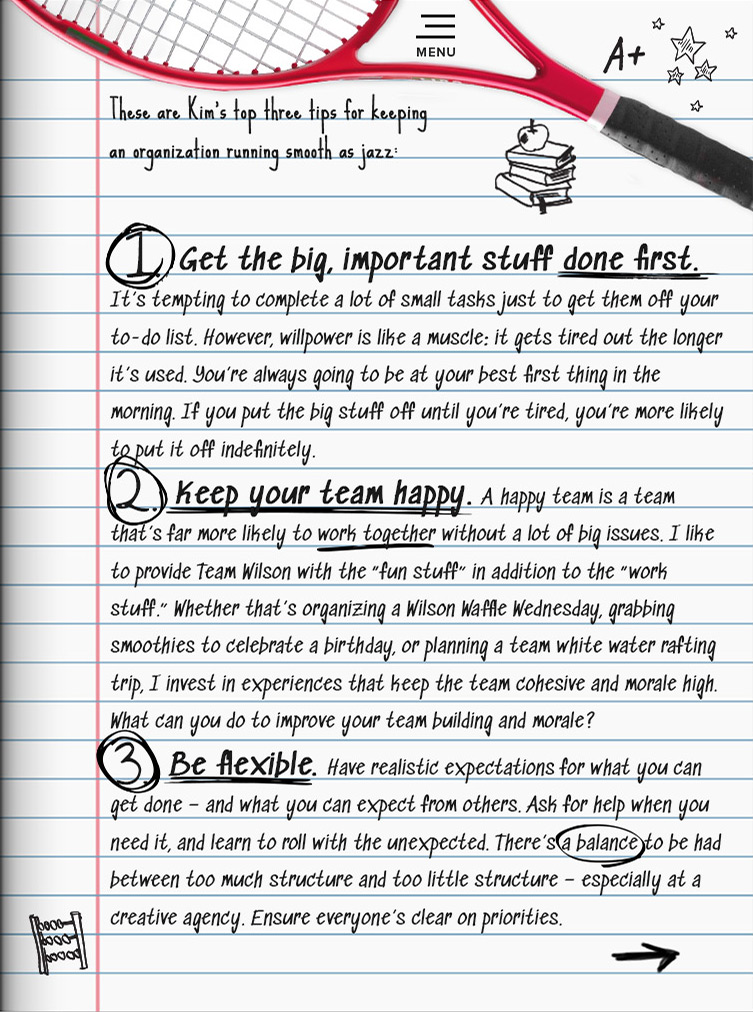 MENU
A+
These are Kim's top three tips for keeping
an organization running smooth as jazz:
1. Get the big, important stuff done first.
It's tempting to complete a lot of small tasks just to get them off your
to-do list. However, willpower is like a muscle: it gets tired out the longer
it's used. You're always going to be at your best first thing in the
morning. If you put the big stuff off until you're tired, you're more likely
to put it off indefinitely.
2. Keep your team happy. A happy team is a team
that's far more likely to work together without a lot of big issues. I like
to provide Team Wilson with the "fun stuff" in addition to the "work
stuff." Whether that's organizing a Wilson Waffle Wednesday, grabbing
smoothies to celebrate a birthday, or planning a team white water rafting
trip, I invest in experiences that keep the team cohesive and morale high.
What can you do to improve your team building and morale?
3. Be flexible. Have realistic expectations for what you can
get done – and what you can expect from others. Ask for help when you
need it, and learn to roll with the unexpected. There's a balance to be had
between too much structure and too little structure – especially at a
creative agency. Ensure everyone's clear on priorities.